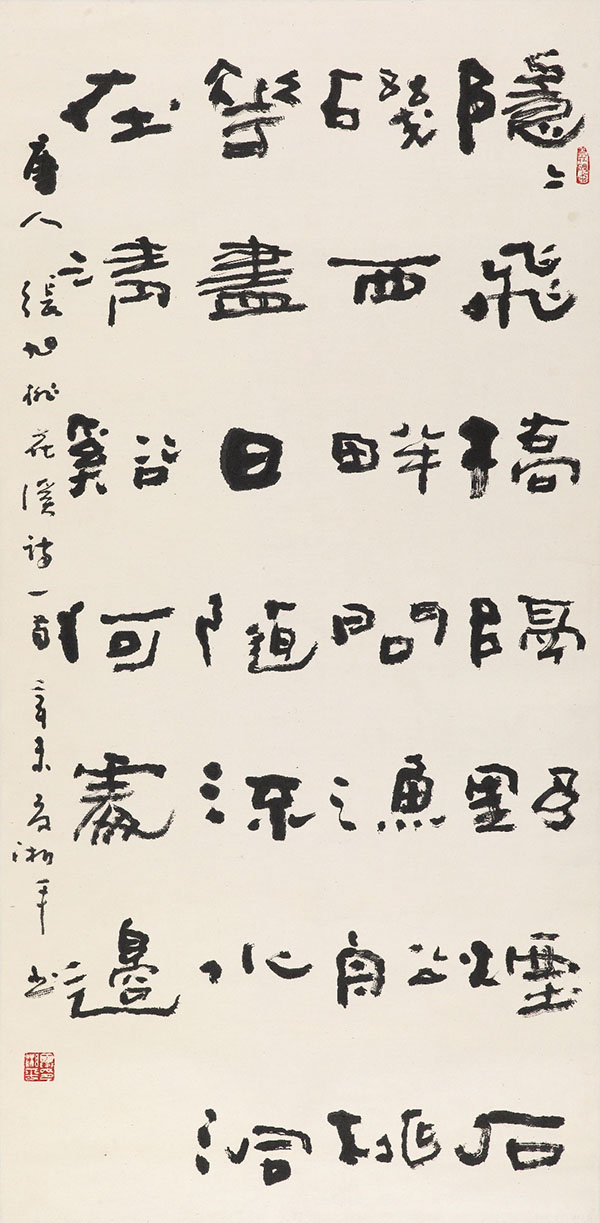 隱〻飛橋隔野煙石
磯西畔問漁舩桃
花盡日隨流水洞
在清谿何處邊
唐人張旭桃花溪詩一首辛未夏湘平书